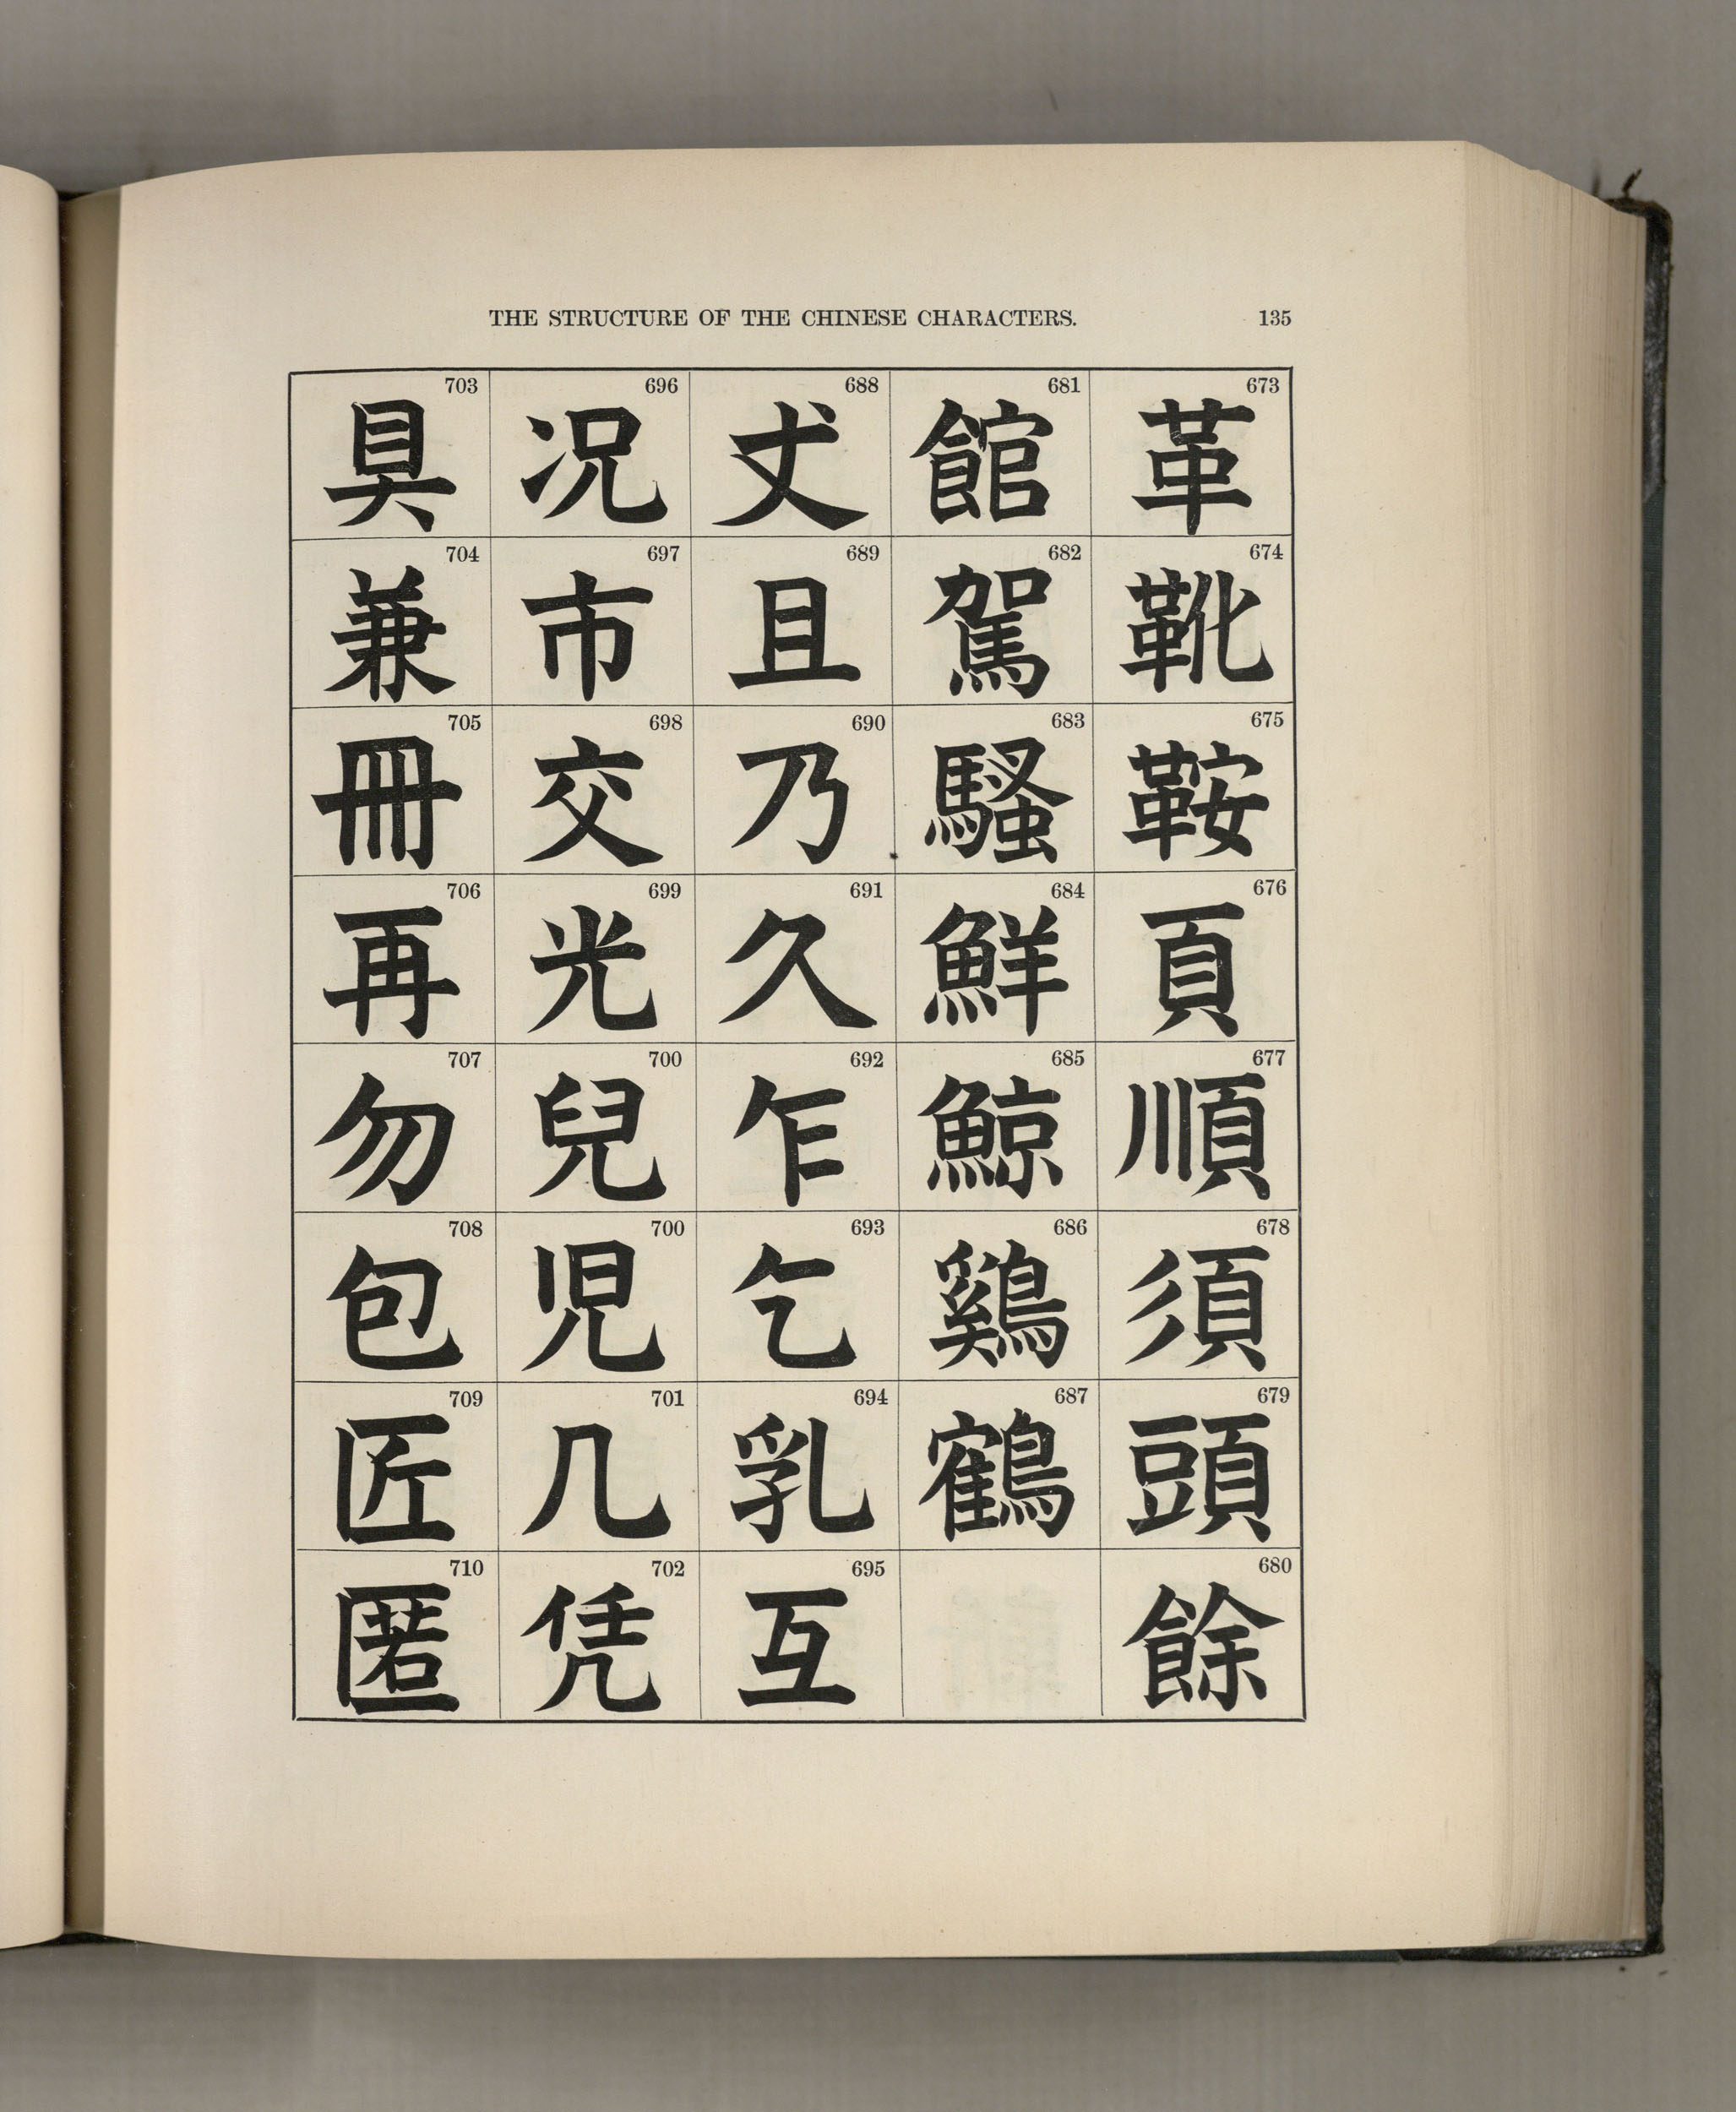 THE STRUCTURE OF THE CHINESE CHARACTERS.
135
673
革
674
靴
675
鞍
676
頁
677
順
678
須
679
頭
680
餘
681
館
682
駕
683
騷
684
鮮
685
鯨
686
鷄
687
鶴
688
𠀋
689
且
690
乃
691
久
692
乍
693
乞
694
乳
695
互
696
况
697
市
698
交
699
光
700
兒
700
児
701
几
702
凭
703
具
704
兼
705
冊
706
再
707
勿
708
包
709
匠
710
匿